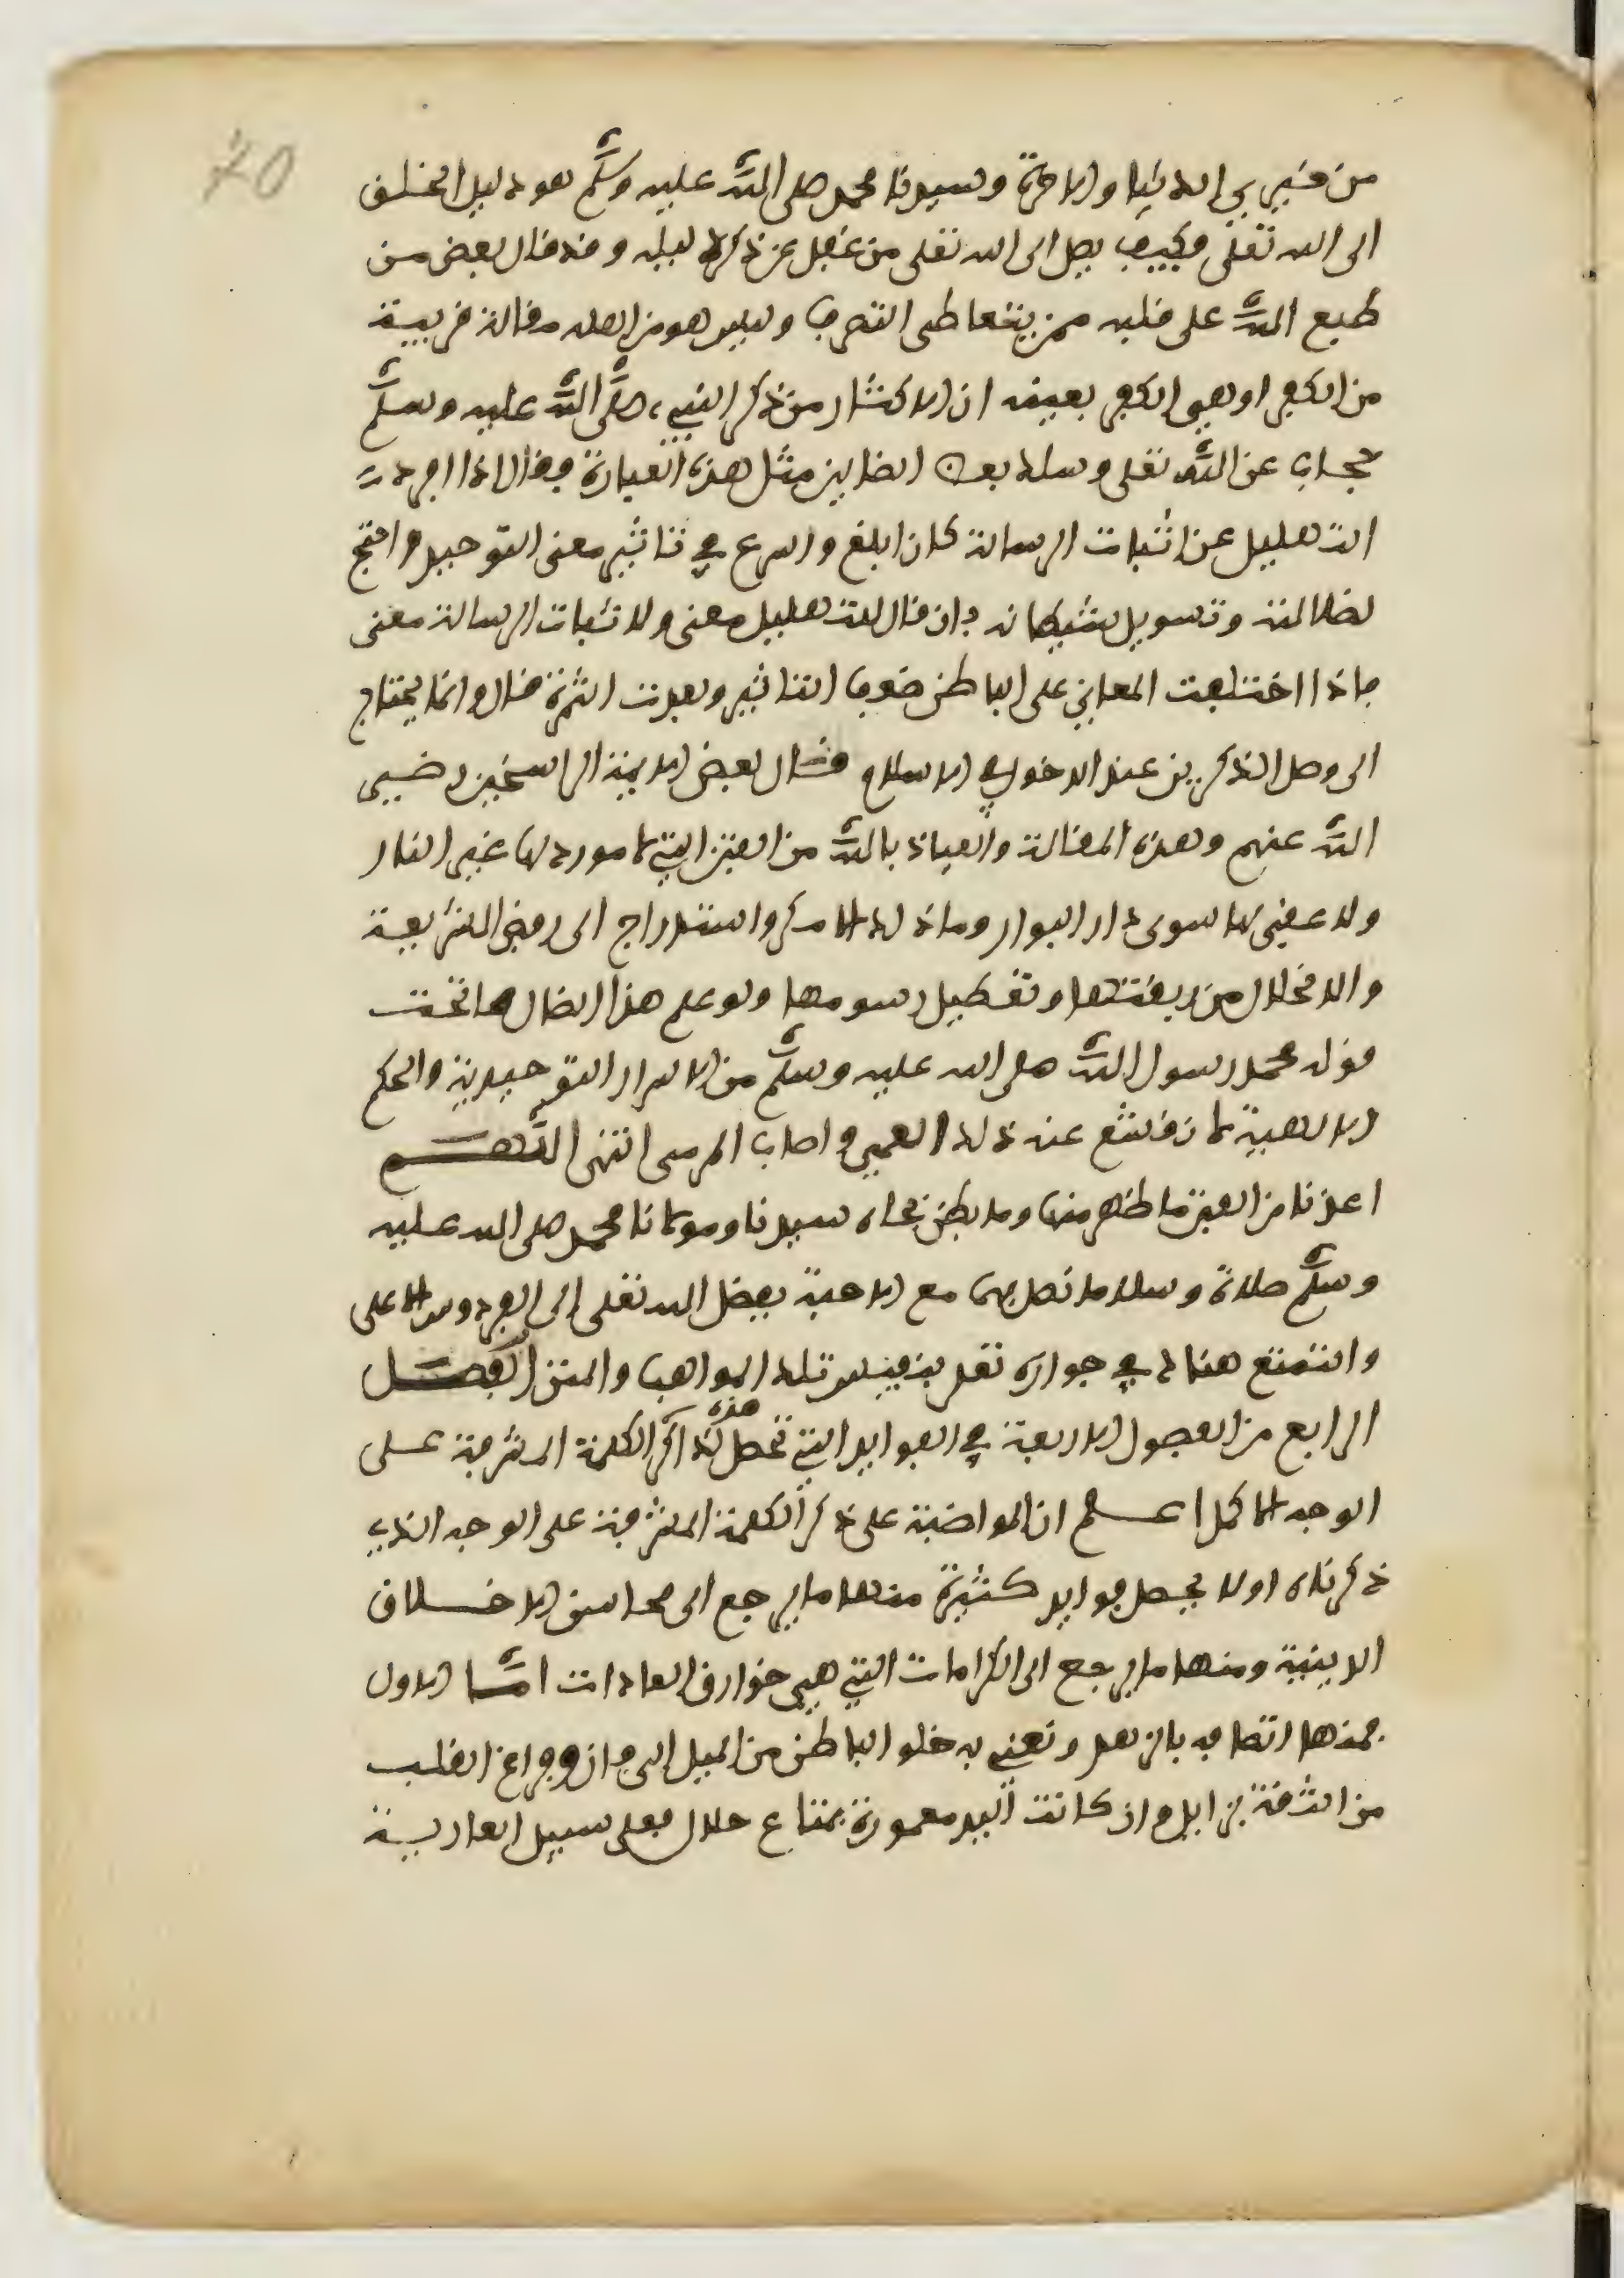 70
من خيري الدنيا والاخرة وسيدنا محمد صلى الله عليه وسلم هو دليل الخلق
الى الله تعلى وكيف يصل الى الله تعلى من غفل عن ذكر دليله وقد قال بعض من
طبع الله على قلبه ممن يتعاطى التصرف وليس هو من اهله مقالة قريبة
من الكفر او هي الكفر بعينه ان الاكثار من ذكر النبي صلى الله عليه وسلم
حجاب عن الله تعلى وسلك بعض الضالين مثل هذه العبارة فقال اذا افردت
التهليل عن اثبات الرسالة كان ابلغ واسرع في تاثير معنى التوحيد واحتج
لضلالته وتسويل شيطانه بان قال للتهليل معنى ولاثبات الرسالة معنى
فاذا اختلفت المعاني على الباطن ضعف التاثير وبعدت الثمرة قال وانما يحتاج
الى وصل الذكرين عند الدخول في الاسلام قال بعض الايمة الراسخين رضي
الله عنهم وهذه المقالة والعياذ بالله من الفتن التي لا مورد لها غير النار
ولا عقبى لها سوى دار البوار وما ذلك الا مكر واستدراج الى رفض الشريعة
والانحلال من ربقتها وتعطيل رسومها ولو علم هذا الضال ما تحت
قوله محمد رسول الله صلى الله عليه وسلم من الاسرار التوحيدية والحكم
الالهية لانقشع عنه ذلك العمى واصاب المرمى انتهى اللهم
اعذنا من الفتن ما ظهر منها وما بطن بجاه سيدنا ومولانا محمد صلى الله عليه
وسلم صلاة وسلاما نصل بهما مع الاحبة بفضل الله تعلى الى الفردوس الاعلى
والتمتع هناك في جواره تعلى بنفيس تلك المواهب والمنن الفصل
الرابع من الفصول الاربعة في الفوايد التي تحصل لذاكر هذه الكلمة المشرفة على
الوجه الاكمل اعلم ان المواضبة على ذكر الكلمة المشرفة على الوجه الذي
ذكرناه اولا يحصل فوايد كثيرة منها ما يرجع الى محاسن الاخلاق
الدينية ومنها ما يرجع الى الكرامات التي هي خوارق العادات اما الاول
فمنها اتصافه بالزهد ونعني به خلو الباطن من الميل الى فان وفراغ القلب
من الثقة بزايل وان كانت اليد معمورة بمتاع حلال فعلى سبيل العارية